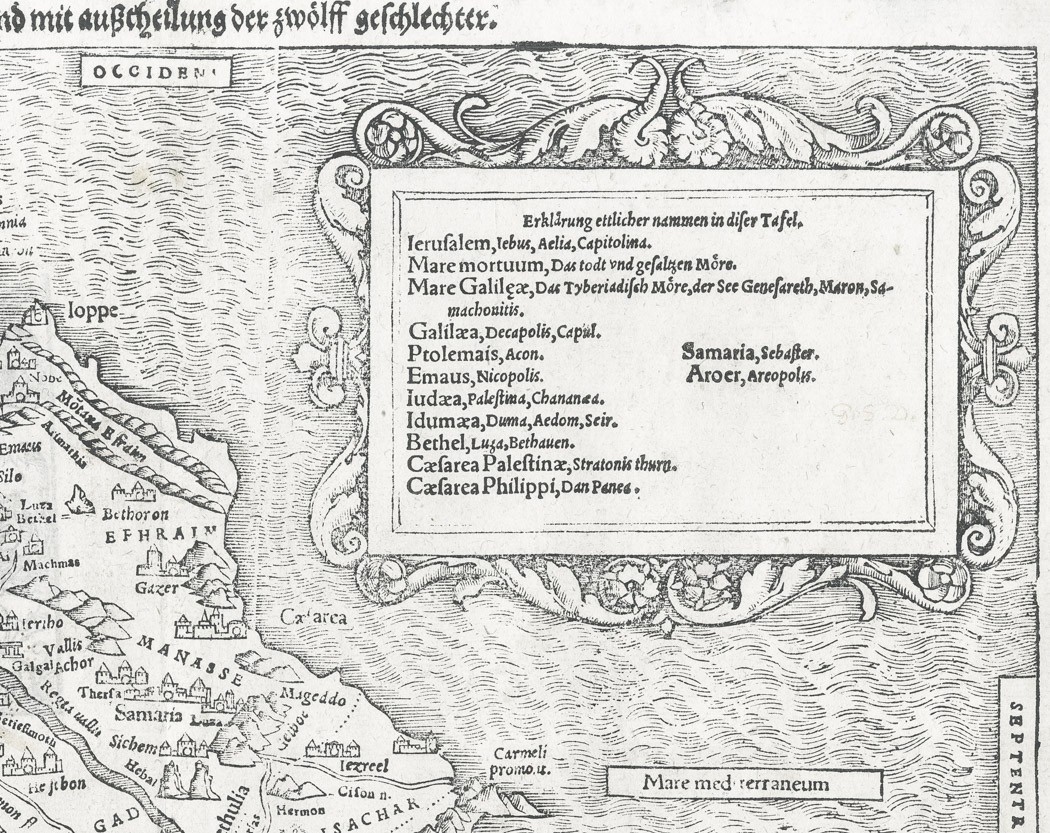 nd mit außtheilung der zwölff geschlechter.
OCCIDEN
Erklärung ettlicher nammen in diser Tafel.
Ierusalem, Iebus, Aelia, Capitolina.
Mare mortuum, Das todt vnd gesaltzen Möre.
Mare Galilęæ, Das Tyberiadisch Möre, der See Genesareth, Maron, Sa-
machonitis.
Galilæa, Decapolis, Capul.
Ptolemais, Acon.
Samaria, Sebaster.
Emaus, Nicopolis.
Aroer, Areopolis.
Iudæa, Palestina, Chananæa.
Idumæa, Duma, Aedom, Seir.
Bethel, Luza, Bethauen.
Cæsarea Palestinæ, Stratonis thurn.
Cæsarea Philippi, Dan Panea.
Ioppe
Nobe
Motana Efraim
Arimathia
Emaus
Silo
Luza
Bethel
Bethoron
EPHRAIN
Machmas
Gazer
Cæsarea
Ierího
Vallis
Achor
Galgal
MANASSE
Thersa
Mageddo
Samaria
Luza
Regia vallis
Gelboe
Sichem
Iezreel
Hebal
Carmeli
promo.
Mare mediterraneum
Hesbon
Cison n.
Hermon
GAD
ethulia
ISACHAR
SEPTENTR